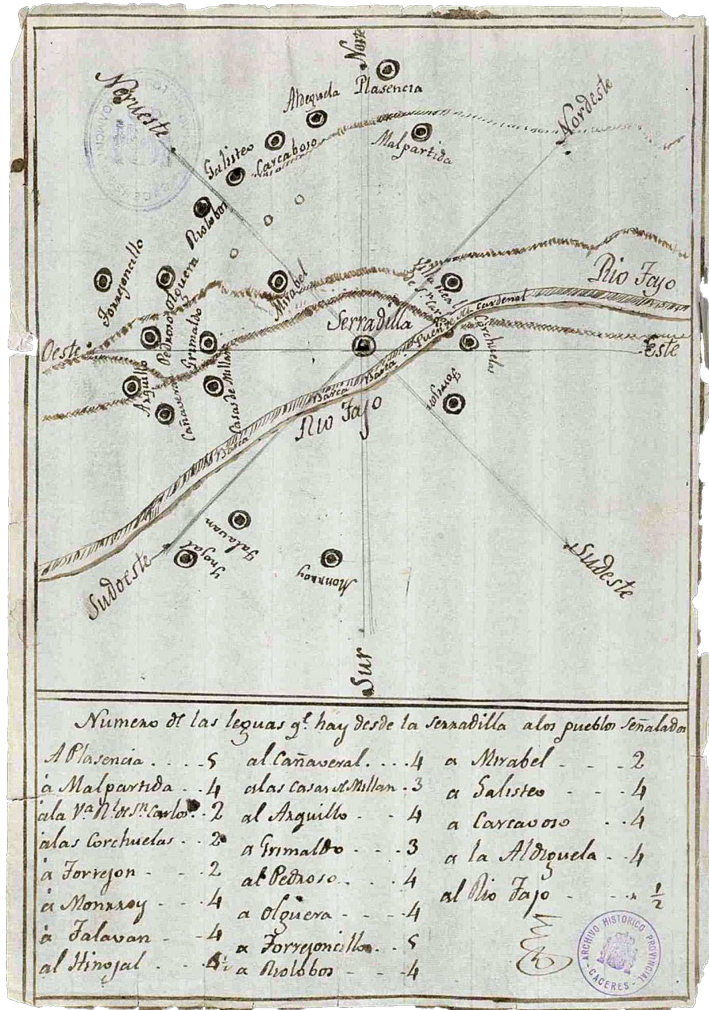 Norte
Plasencia
Aldeguela
Norueste
Nordeste
Malpartida
Galisteo
Carcaboso
Riolobos
Torrejoncillo
Olguera
Pedroso
Mirabel
Villa Real
de Sn. Carlos
Rio Tajo
Puente del Cardenal
Serradilla
Grimaldo
Corchuelas
Oeste
Este
Arquillo
Cañaveral
Casas de Millan
Barca
Barca
Barca
Torrejon
Rio Tajo
Talavan
Ynojal
Monrroy
Sudoeste
Sudeste
Sur
Numero de las leguas qe. hay desde la serradilla alos pueblos señalados
A Plasencia . . . . 5
à Malpartida . . . 4
àla Va. Rl. de Sn. Carlos . . 2
àlas Corchuelas . . 2
à Torrejon - - - 2
à Monrroy - - - 4
à Talavan - - - 4
al Hinojal . . . 4½
al Cañaveral . . . . 4
alas Casas de Millan . 3
al Arquillo - - - 4
a Grimaldo - - - 3
al Pedroso . - - - 4
a Olguera - - - 4
a Torrejoncillo . . . 5
a Riolobos - - - 4
a Mirabel - - - 2
a Galisteo - - - 4
a Carcavoso . . . 4
a la Aldeguela - - 4
al Rio Tajo - - - ½
ARCHIVO HISTORICO PROVINCIAL
CACERES